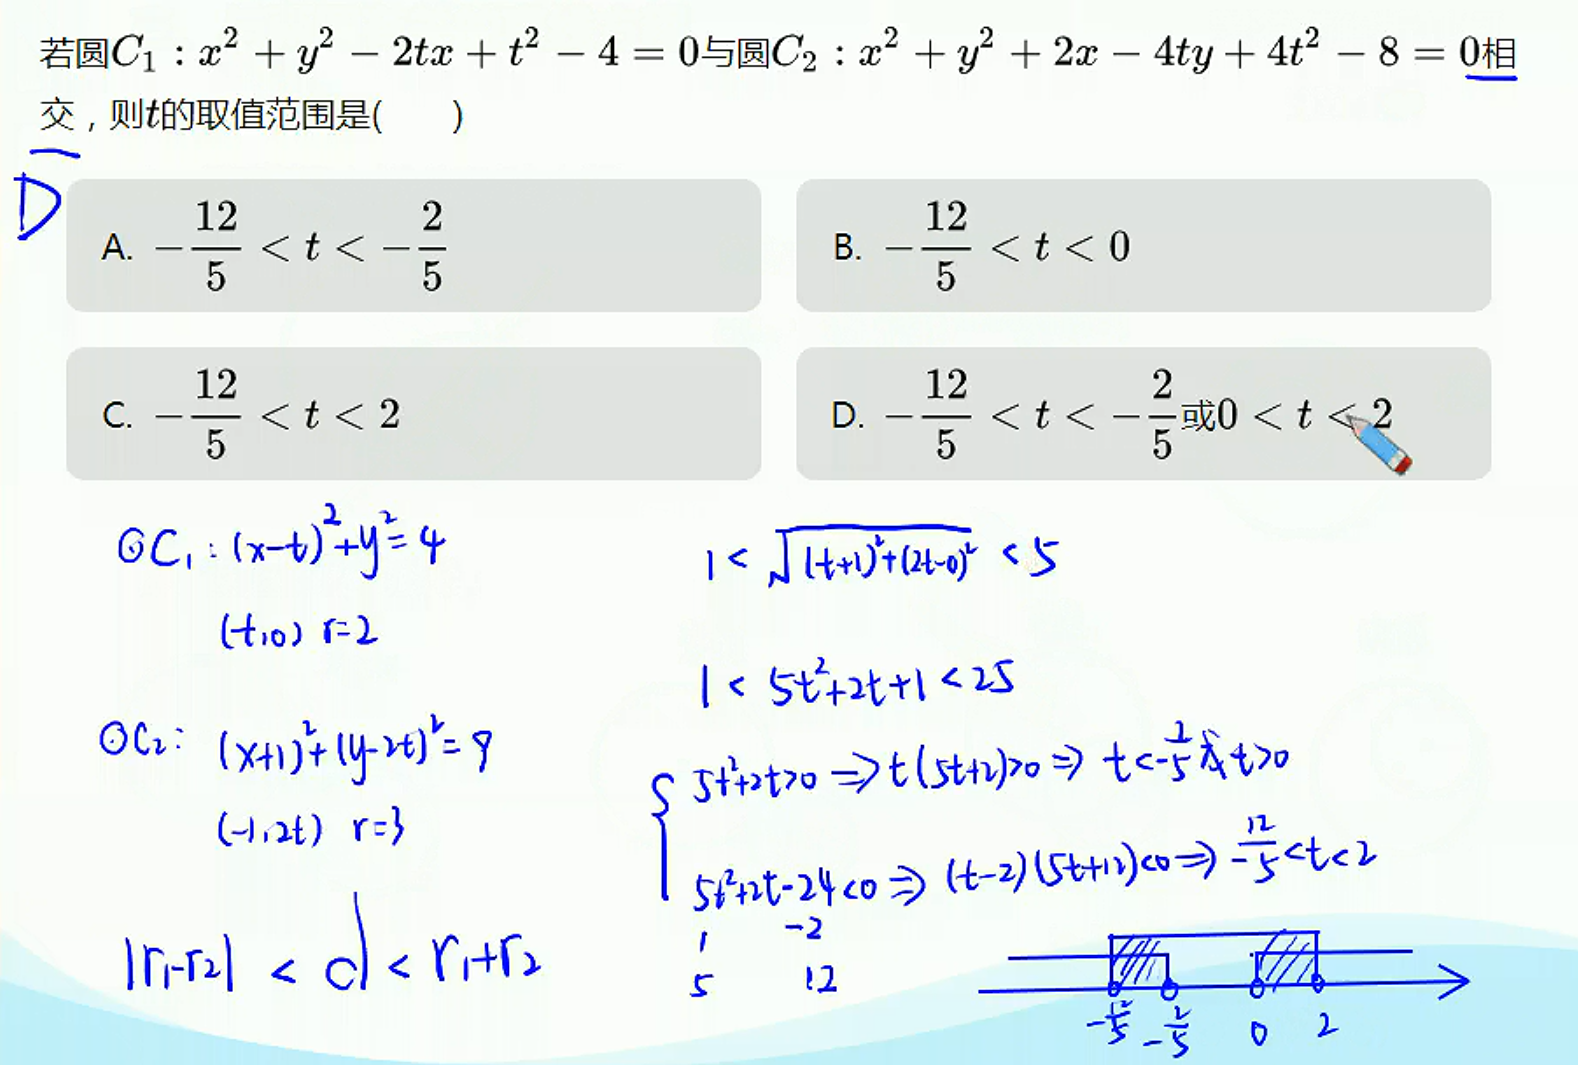 若圆C₁ : x² + y² − 2tx + t² − 4 = 0与圆C₂ : x² + y² + 2x − 4ty + 4t² − 8 = 0相
交，则t的取值范围是(　　)
D
A. −12/5 < t < −2/5
B. −12/5 < t < 0
C. −12/5 < t < 2
D. −12/5 < t < −2/5或0 < t < 2
⊙C₁: (x−t)²+y²=4
(t,0) r=2
⊙C₂: (x+1)²+(y−2t)²=9
(−1,2t) r=3
|r₁−r₂| < d < r₁+r₂
1 < √((t+1)²+(2t−0)²) < 5
1 < 5t²+2t+1 < 25
{ 5t²+2t>0 ⇒ t(5t+2)>0 ⇒ t<−2/5 或 t>0
5t²+2t−24<0 ⇒ (t−2)(5t+12)<0 ⇒ −12/5<t<2
1 −2
5 12
−12/5 −2/5 0 2